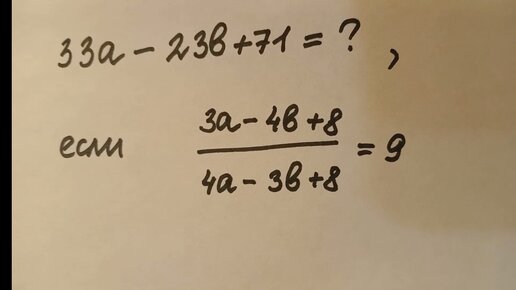 33a - 23b + 71 = ? ,
если (3a - 4b + 8) / (4a - 3b + 8) = 9